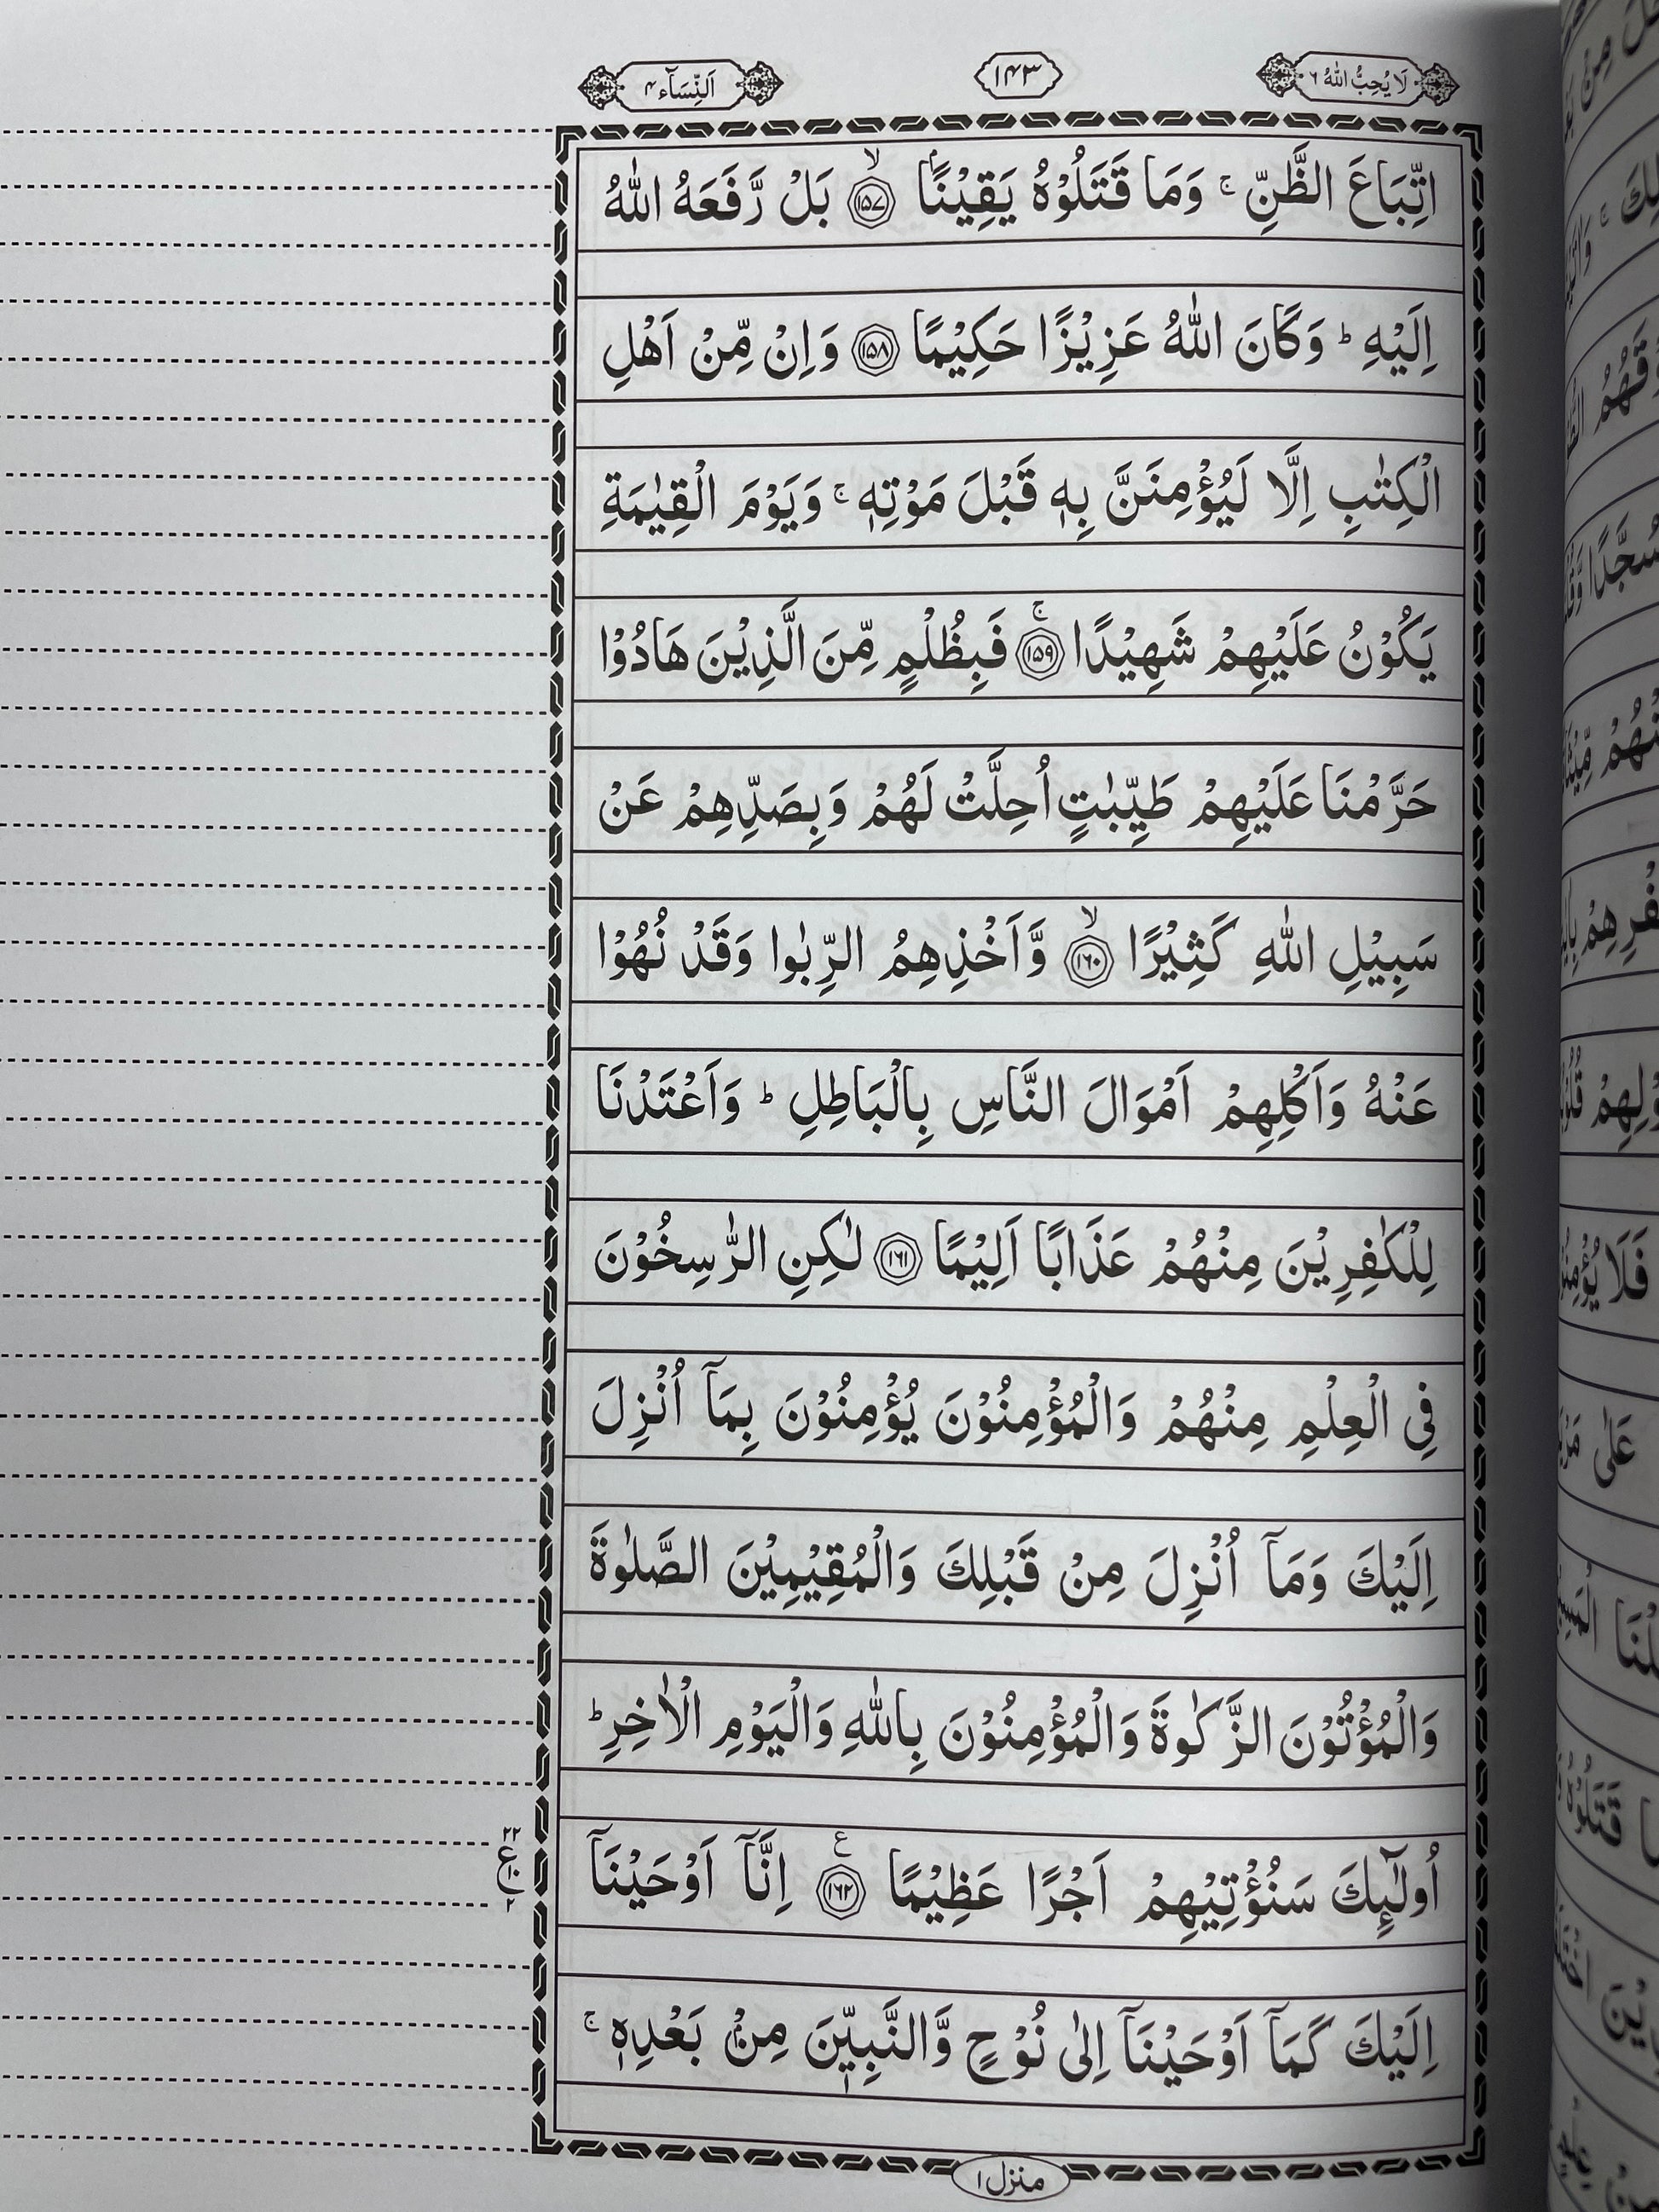 لَا يُحِبُّ اللّٰهُ ٦
١٤٣
اَلنِّسَآء ٤
اتِّبَاعَ الظَّنِّ ۚ وَمَا قَتَلُوْهُ يَقِيْنًۢا ۙ﴿١٥٧﴾ بَلْ رَّفَعَهُ اللّٰهُ
اِلَيْهِ ؕ وَكَانَ اللّٰهُ عَزِيْزًا حَكِيْمًا ﴿١٥٨﴾ وَاِنْ مِّنْ اَهْلِ
الْكِتٰبِ اِلَّا لَيُؤْمِنَنَّ بِهٖ قَبْلَ مَوْتِهٖ ۚ وَيَوْمَ الْقِيٰمَةِ
يَكُوْنُ عَلَيْهِمْ شَهِيْدًا ۚ﴿١٥٩﴾ فَبِظُلْمٍ مِّنَ الَّذِيْنَ هَادُوْا
حَرَّمْنَا عَلَيْهِمْ طَيِّبٰتٍ اُحِلَّتْ لَهُمْ وَبِصَدِّهِمْ عَنْ
سَبِيْلِ اللّٰهِ كَثِيْرًا ۙ﴿١٦٠﴾ وَّاَخْذِهِمُ الرِّبٰوا وَقَدْ نُهُوْا
عَنْهُ وَاَكْلِهِمْ اَمْوَالَ النَّاسِ بِالْبَاطِلِ ؕ وَاَعْتَدْنَا
لِلْكٰفِرِيْنَ مِنْهُمْ عَذَابًا اَلِيْمًا ﴿١٦١﴾ لٰكِنِ الرّٰسِخُوْنَ
فِى الْعِلْمِ مِنْهُمْ وَالْمُؤْمِنُوْنَ يُؤْمِنُوْنَ بِمَآ اُنْزِلَ
اِلَيْكَ وَمَآ اُنْزِلَ مِنْ قَبْلِكَ وَالْمُقِيْمِيْنَ الصَّلٰوةَ
وَالْمُؤْتُوْنَ الزَّكٰوةَ وَالْمُؤْمِنُوْنَ بِاللّٰهِ وَالْيَوْمِ الْاٰخِرِ ؕ
اُولٰٓئِكَ سَنُؤْتِيْهِمْ اَجْرًا عَظِيْمًا ﴿١٦٢﴾ع اِنَّآ اَوْحَيْنَآ
٢٢
ع
٢
اِلَيْكَ كَمَآ اَوْحَيْنَآ اِلٰى نُوْحٍ وَّالنَّبِيّٖنَ مِنْۢ بَعْدِهٖ ۚ
منزل ١